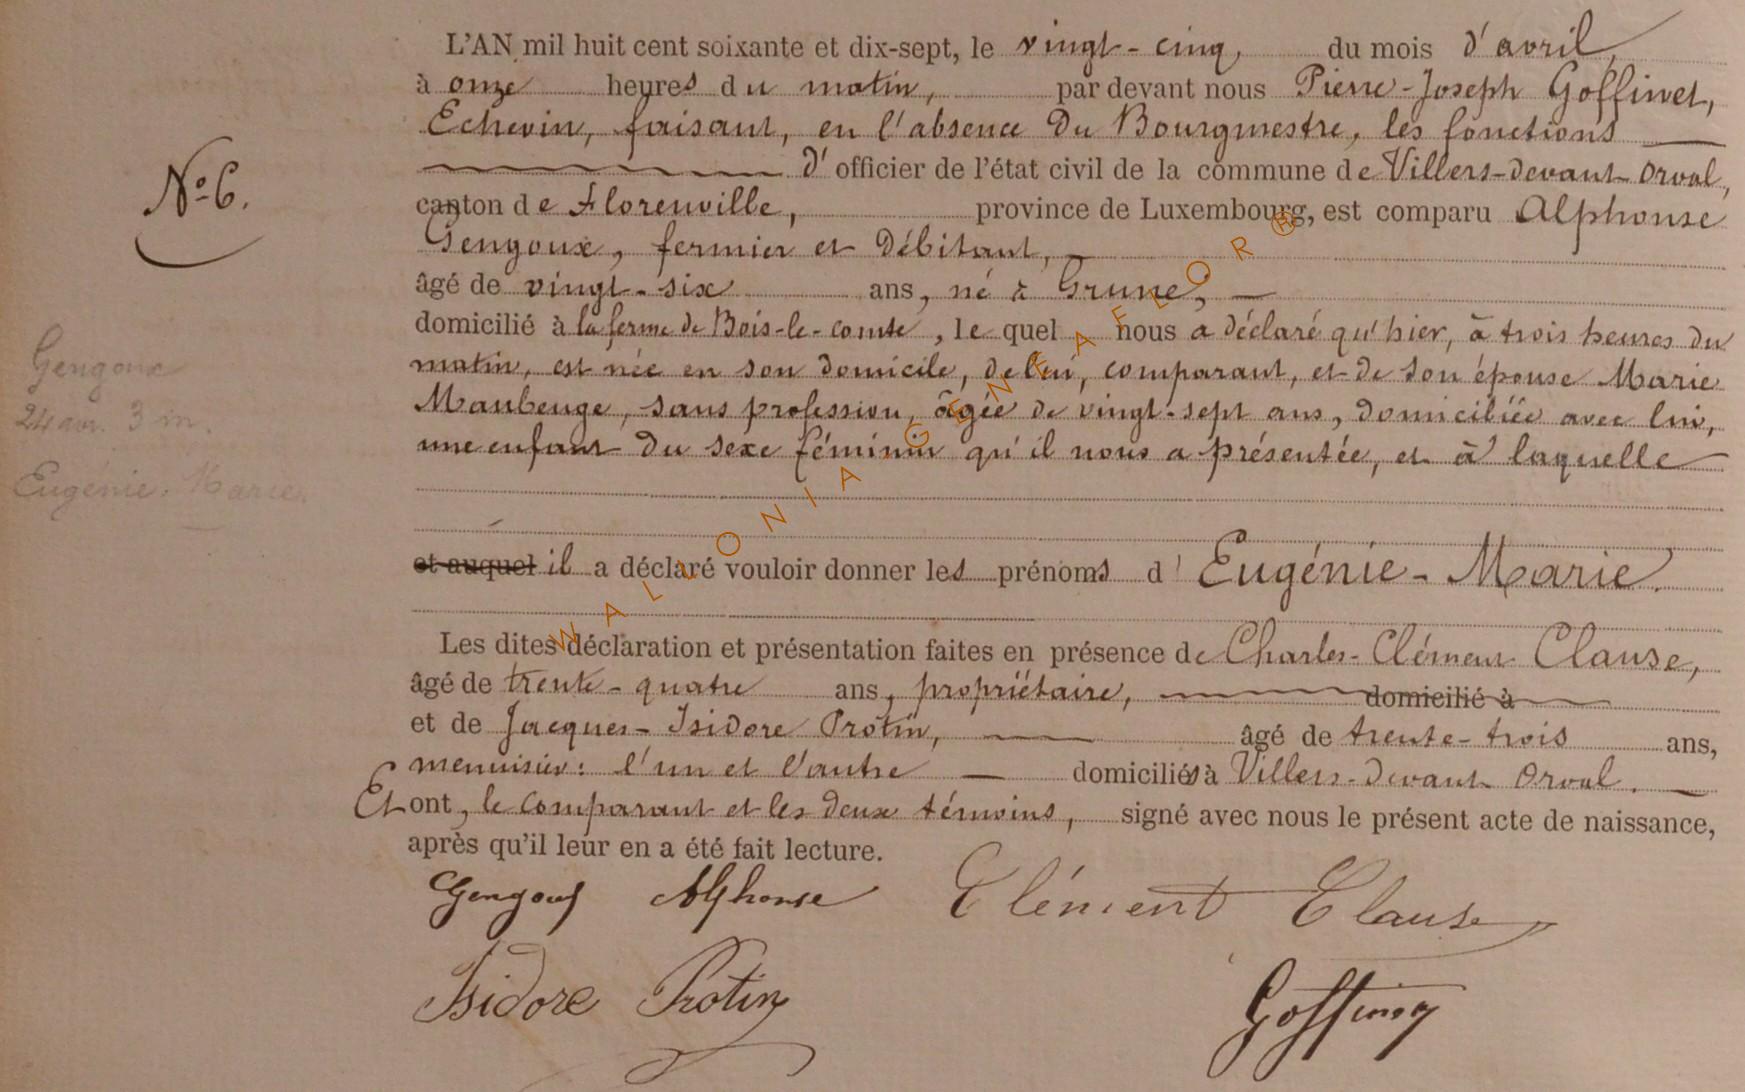 L'AN mil huit cent soixante et dix-sept, le vingt-cinq, du mois d'avril,
à onze heures du matin, par devant nous Pierre-Joseph Goffinet,
Echevin, faisant, en l'absence du Bourgmestre, les fonctions
d'officier de l'état civil de la commune de Villers-devant-Orval,
N° 6.
canton de Florenville, province de Luxembourg, est comparu Alphonse
Gengoux, fermier et débitant,
âgé de vingt-six ans, né à Grune,
domicilié à la ferme de Bois-le-comte, lequel nous a déclaré qu'hier, à trois heures du
Gengoux
matin, est née en son domicile, de lui, comparant, et de son épouse Marie
24 avr. 3 m.
Maubeuge, sans profession, âgée de vingt-sept ans, domiciliée avec lui,
une enfant du sexe féminin qu'il nous a présentée, et à laquelle
Eugénie-Marie
et auquel il a déclaré vouloir donner les prénoms d'Eugénie-Marie.
Les dites déclaration et présentation faites en présence de Charles-Clément Clause,
âgé de trente-quatre ans, propriétaire, domicilié à
et de Jacques-Isidore Protin, âgé de trente-trois ans,
menuisier: l'un et l'autre domiciliés à Villers-devant-Orval.
Et ont, le comparant et les deux témoins, signé avec nous le présent acte de naissance,
après qu'il leur en a été fait lecture.
Gengoux Alphonse Clément Clause
Isidore Protin Goffinet
WALLONIA GENEAFLOR®